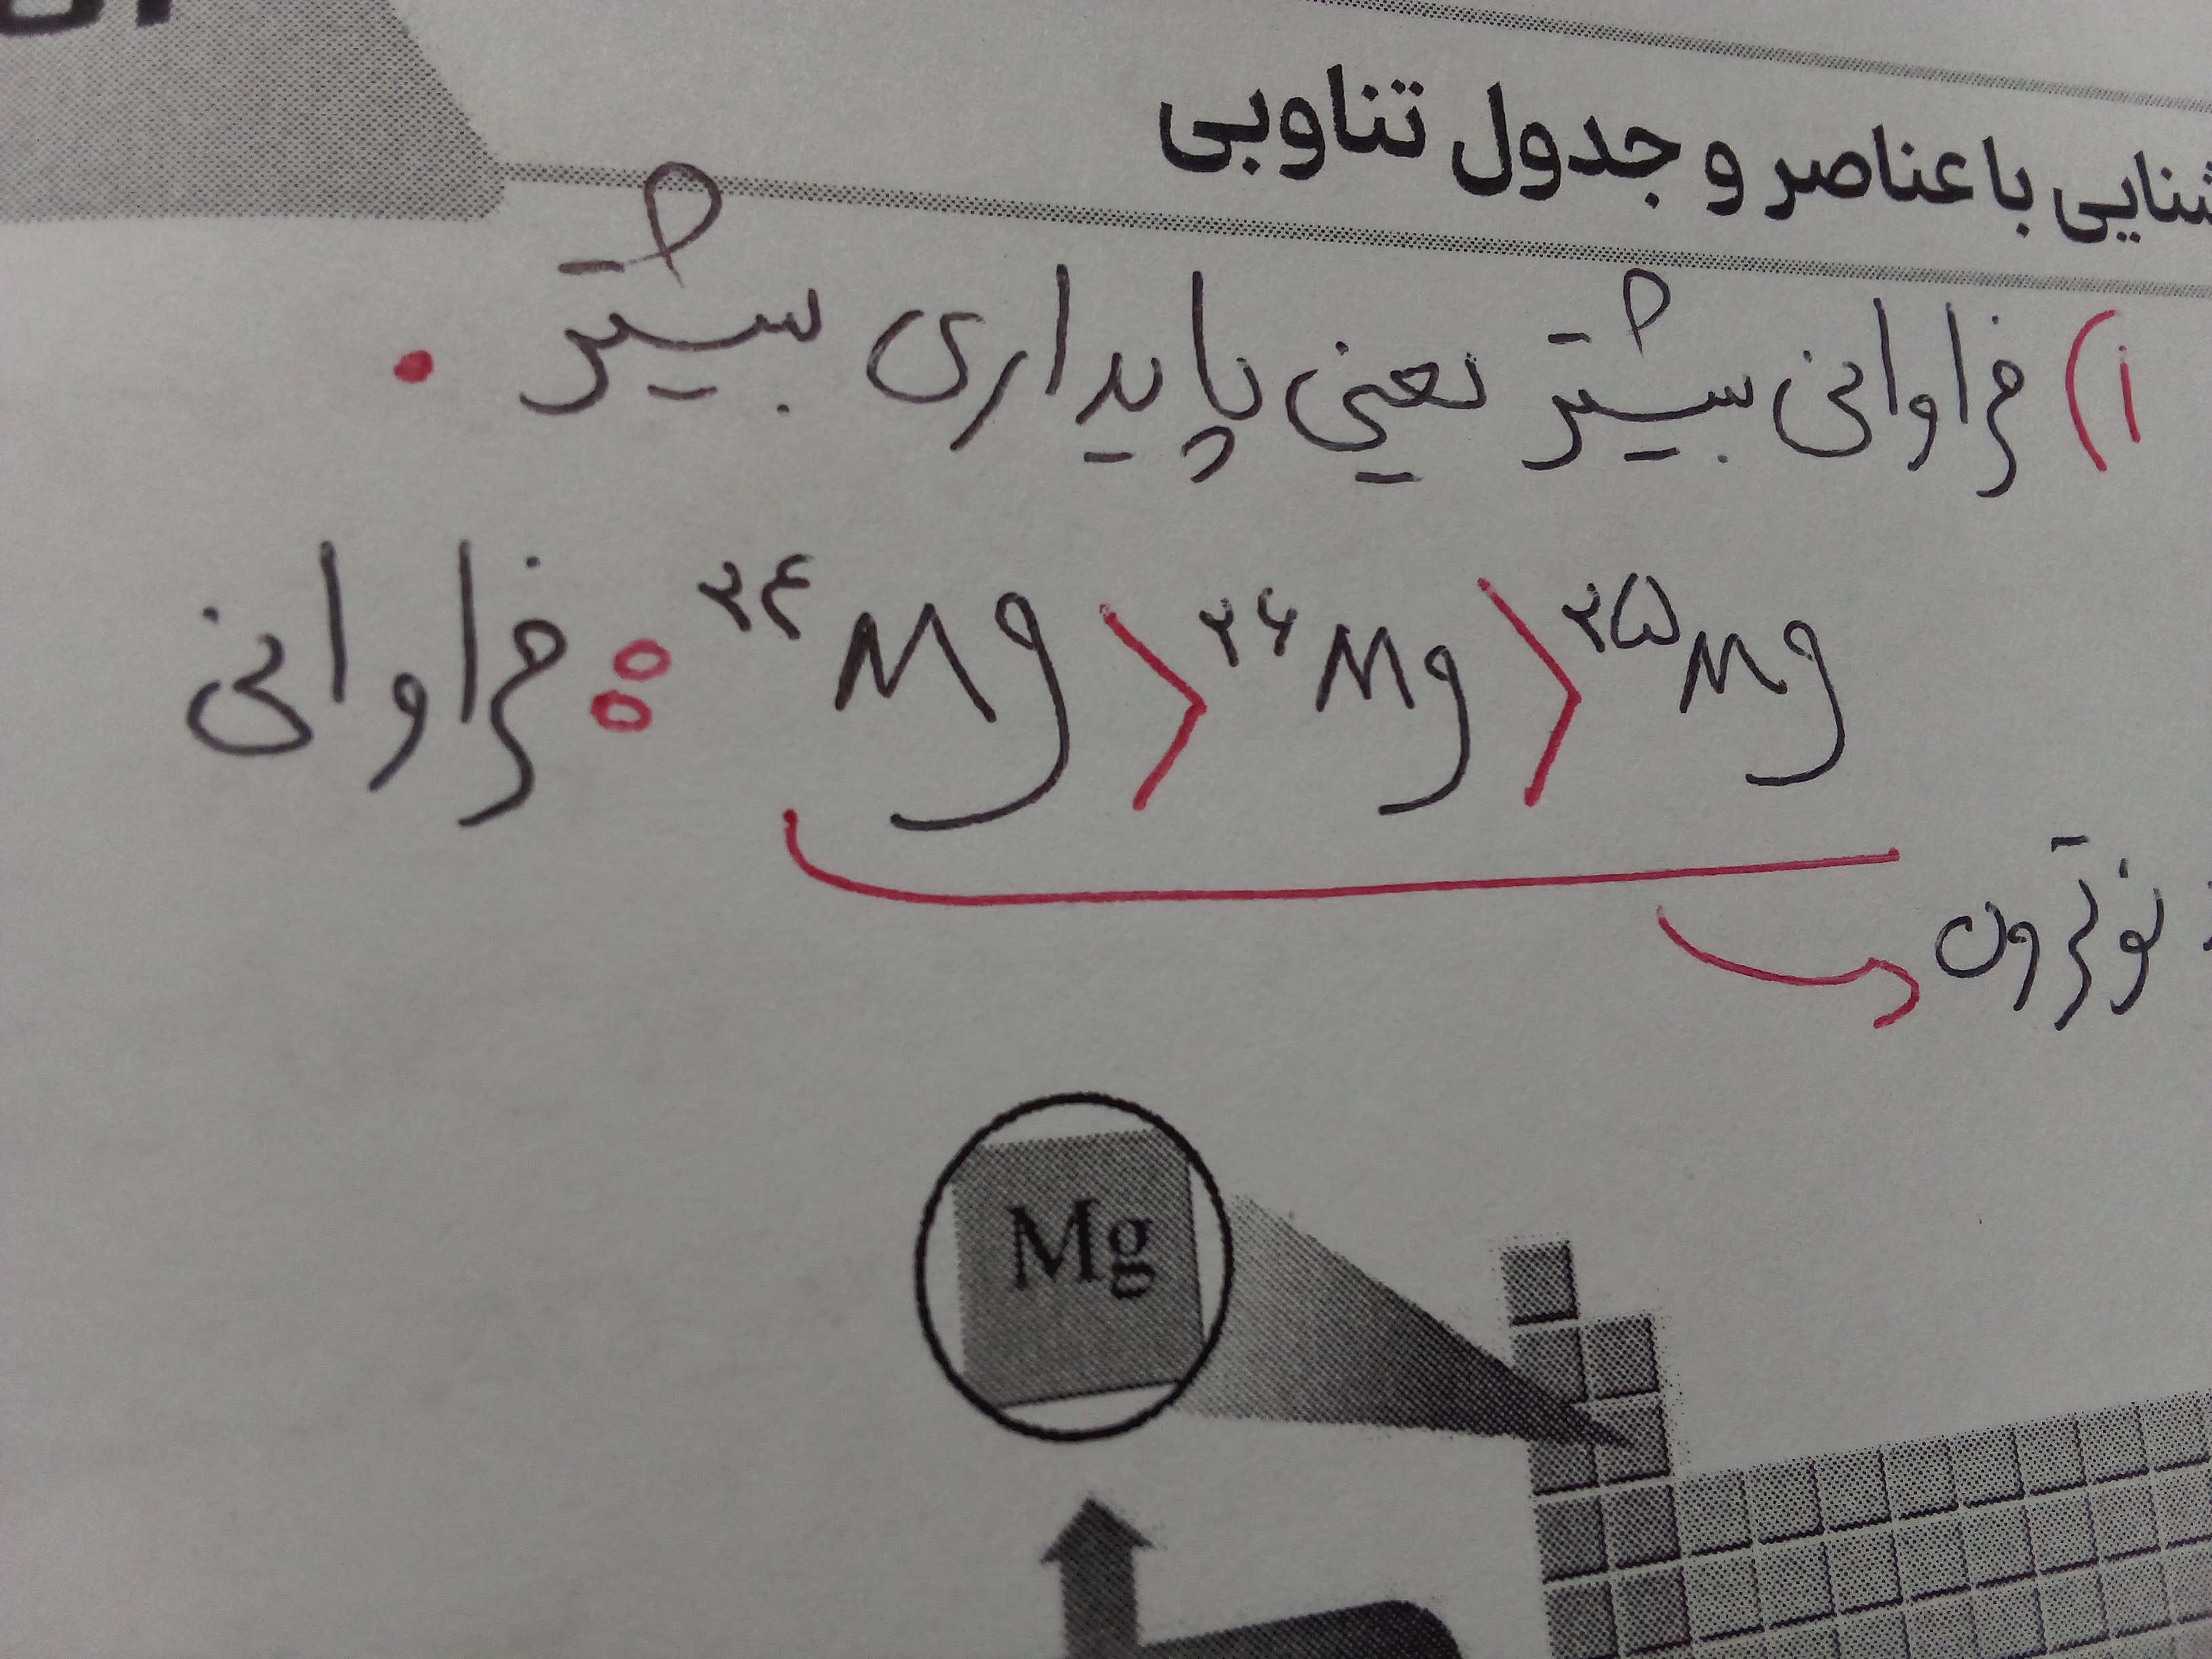 با عناصر و جدول تناوبی
۱) فراوانی بیشتر یعنی پایداری بیشتر .
فراوانی : ²⁴Mg > ²⁶Mg > ²⁵Mg
نوترون
Mg